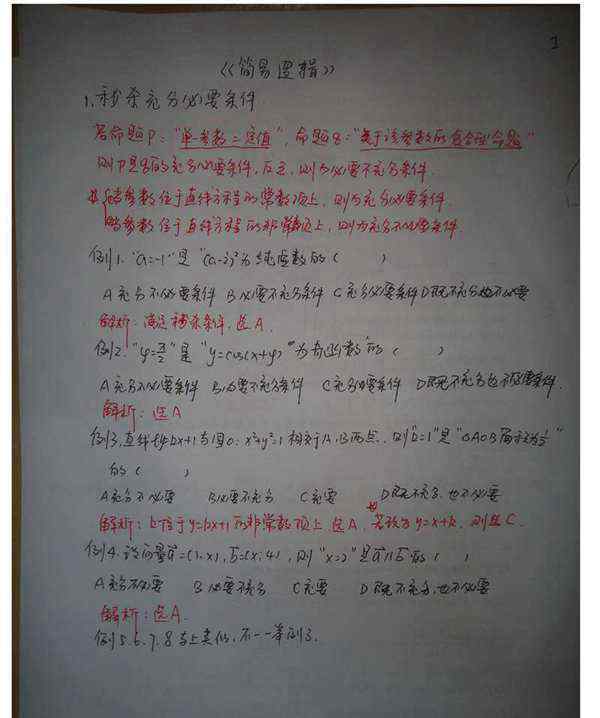 1
《简易逻辑》
1.秒杀充分必要条件
若命题P:"单参数=定值",命题q:"关于该参数的包含型命题"
则P是q的充分不必要条件,反之,则为必要不充分条件.
当参数位于直线方程的常数项上,则为充分必要条件
当参数位于直线方程的非常数项上,则为充分不必要条件.
例1."a=-1"是"(a-i)²为纯虚数的( )
A充分不必要条件 B必要不充分条件 C充分必要条件 D既不充分也不必要
解析:满足秒杀条件,选A.
例2."φ=π/2"是"y=cos(x+φ)为奇函数"的( )
A充分不必要条件 B必要不充分条件 C充分必要条件 D既不充分也不必要条件.
解析:选A
例3.直线l:y=kx+1与圆O:x²+y²=1相交于A,B两点,则"k=1"是"△AOB面积为1/2"
的( )
A充分不必要 B必要不充分 C充要 D既不充分,也不必要
解析:k位于y=kx+1的非常数项上 选A,若改为y=x+k,则选C.
例4.设向量a=(1,x),b=(x,4),则"x=2"是a∥b的( )
A充分不必要 B必要不充分 C充要 D既不充分,也不必要
解析:选A.
例5.6.7.8与上类似,不一一举例了.